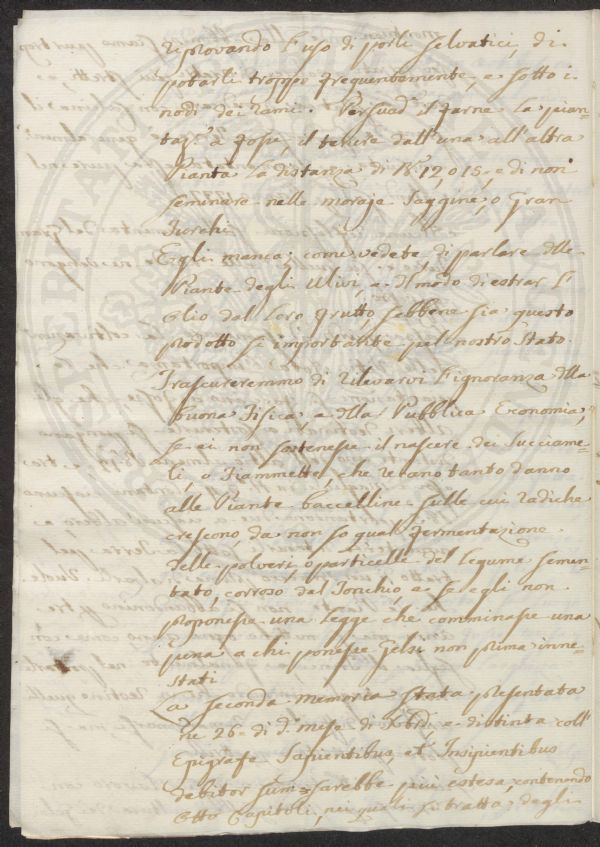 riprovando l'uso di porli selvatici, di
potarli troppo frequentemente, e sotto i
nodi dei rami. Persuad.e il farne la pian-
taz.e a fosse, il tenere dall'una all'altra
Pianta la distanza di B.a 12, o 15, e di non
seminare nelle moraje Saggine, o Gran
Turchi
Egli manca, come vedete di parlare delle
Piante degli Ulivi, e il modo di estrar l'
Olio dal loro frutto, sebbene sia questo
prodotto sì importante pel nostro Stato
Trascureremmo di rilevarvi l'ignoranza della
buona Fisica, e della Pubblica Economia,
se ei non sostenesse il nascere dei Succiame-
li, o Fiammette, che recano tanto danno
alle Piante baccelline sulle cui radiche
crescono da non so qual fermentazione
delle polveri, o particelle del legume semen-
tato, corroso dal Tonchio, e se egli non
proponesse una legge che comminasse una
pena a chi ponesse Gelsi non prima inne-
stati
La seconda Memoria stata presentata
ne 26 di d.o mese di Xbre, e distinta coll'
Epigrafe Sapientibus, et Insipientibus
debitor sum sarebbe più estesa, contenendo
Otto Capitoli, nei quali si tratta degli